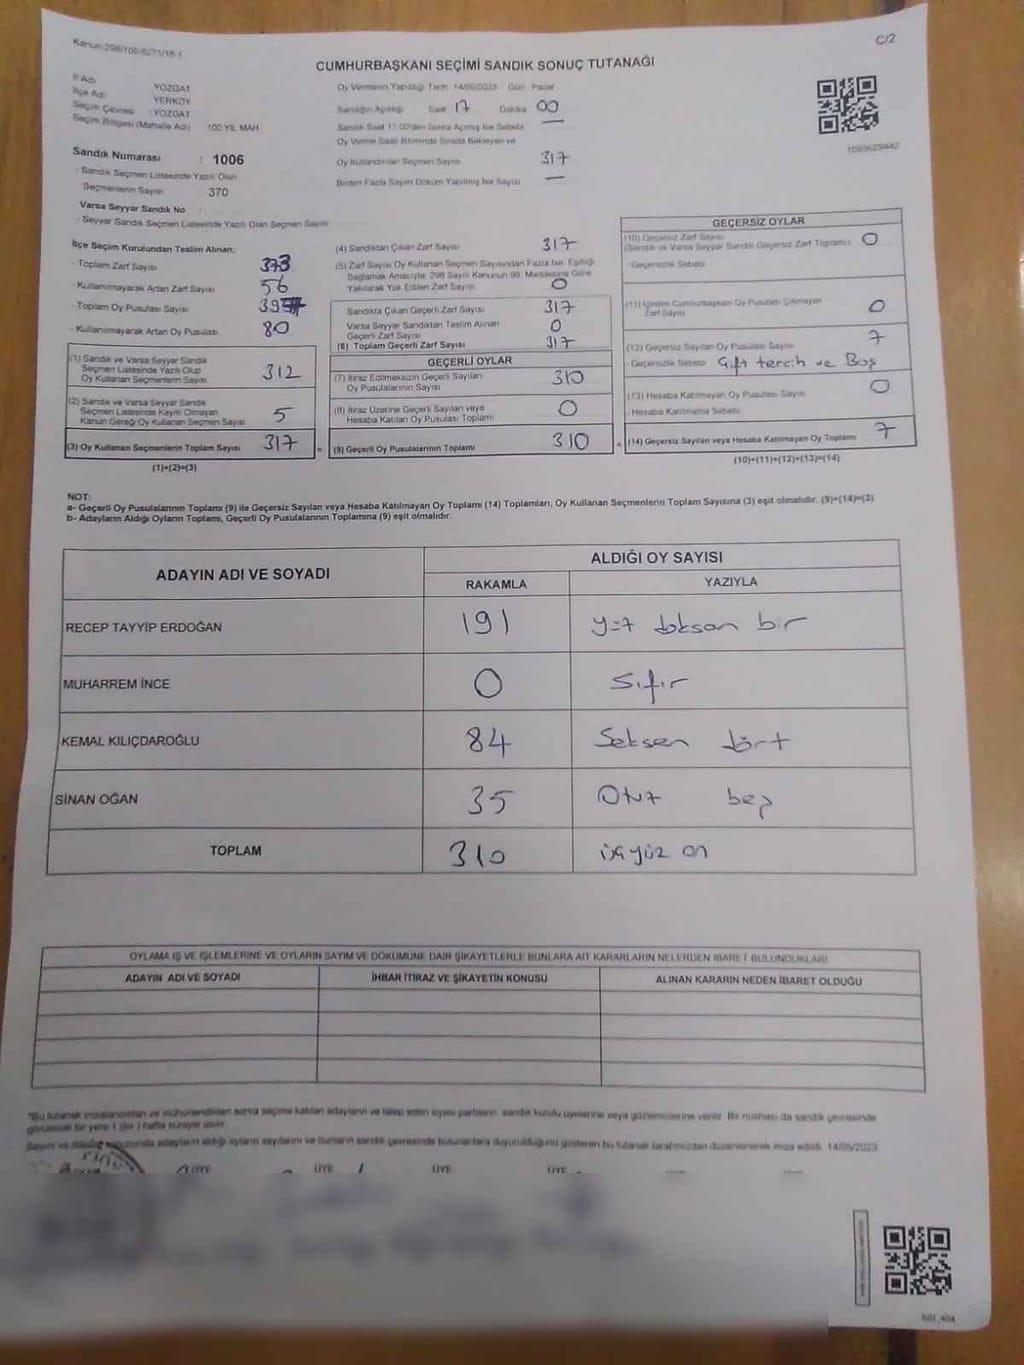 Kanun:298/105/6271/18-1
C/2
CUMHURBAŞKANI SEÇİMİ SANDIK SONUÇ TUTANAĞI
İl Adı : YOZGAT
İlçe Adı : YERKÖY
Seçim Çevresi : YOZGAT
Seçim Bölgesi (Mahalle Adı) 100 YIL MAH
Sandık Numarası : 1006
- Sandık Seçmen Listesinde Yazılı Olan
Seçmenlerin Sayısı : 370
Varsa Seyyar Sandık No :
- Seyyar Sandık Seçmen Listesinde Yazılı Olan Seçmen Sayısı
Oy Vermenin Yapıldığı Tarih 14/05/2023 Gün Pazar
Sandığın Açıldığı Saat 17 Dakika 00
Sandık Saat 17:00'den Sonra Açılmış İse Sebebi —
Oy Verme Saati Bitiminde Sırada Bekleyen ve
Oy Kullandırılan Seçmen Sayısı 317
Birden Fazla Sayım Döküm Yapılmış İse Sayısı —
1093629442
İlçe Seçim Kurulundan Teslim Alınan;
- Toplam Zarf Sayısı 373
- Kullanılmayarak Artan Zarf Sayısı 56
- Toplam Oy Pusulası Sayısı
- Kullanılmayarak Artan Oy Pusulası 80
(1) Sandık ve Varsa Seyyar Sandık
Seçmen Listesinde Yazılı Olup
Oy Kullanan Seçmenlerin Sayısı 312
(2) Sandık ve Varsa Seyyar Sandık
Seçmen Listesinde Kayıtlı Olmayan
Kanun Gereği Oy Kullanan Seçmen Sayısı 5
(3) Oy Kullanan Seçmenlerin Toplam Sayısı 317
(1)+(2)=(3)
(4) Sandıktan Çıkan Zarf Sayısı 317
(5) Zarf Sayısı Oy Kullanan Seçmen Sayısından Fazla İse, Eşitliği
Sağlamak Amacıyla, 298 Sayılı Kanunun 98. Maddesine Göre
Yakılarak Yok Edilen Zarf Sayısı 0
Sandıkta Çıkan Geçerli Zarf Sayısı 317
Varsa Seyyar Sandıktan Teslim Alınan
Geçerli Zarf Sayısı 0
(6) Toplam Geçerli Zarf Sayısı 317
GEÇERLİ OYLAR
(7) İtiraz Edilmeksizin Geçerli Sayılan
Oy Pusulalarının Sayısı 310
(8) İtiraz Üzerine Geçerli Sayılan veya
Hesaba Katılan Oy Pusulası Toplamı 0
= (9) Geçerli Oy Pusulalarının Toplamı 310
GEÇERSİZ OYLAR
(10) Geçersiz Zarf Sayısı
(Sandık ve Varsa Seyyar Sandık Geçersiz Zarf Toplamı) 0
- Geçersizlik Sebebi
(11) İçinden Cumhurbaşkanı Oy Pusulası Çıkmayan
Zarf Sayısı 0
(12) Geçersiz Sayılan Oy Pusulası Sayısı 7
- Geçersizlik Sebebi Çift tercih ve Boş
(13) Hesaba Katılmayan Oy Pusulası Sayısı 0
Hesaba Katılmama Sebebi
+ (14) Geçersiz Sayılan veya Hesaba Katılmayan Oy Toplamı 7
(10)+(11)+(12)+(13)=(14)
NOT:
a- Geçerli Oy Pusulalarının Toplamı (9) ile Geçersiz Sayılan veya Hesaba Katılmayan Oy Toplamı (14) Toplamları, Oy Kullanan Seçmenlerin Toplam Sayısına (3) eşit olmalıdır. (9)+(14)=(3)
b- Adayların Aldığı Oyların Toplamı, Geçerli Oy Pusulalarının Toplamına (9) eşit olmalıdır.
ADAYIN ADI VE SOYADI
ALDIĞI OY SAYISI
RAKAMLA YAZIYLA
RECEP TAYYİP ERDOĞAN 191 yüz doksan bir
MUHARREM İNCE 0 Sıfır
KEMAL KILIÇDAROĞLU 84 Seksen dört
SİNAN OĞAN 35 Otuz beş
TOPLAM 310 üçyüz on
OYLAMA İŞ VE İŞLEMLERİNE VE OYLARIN SAYIM VE DÖKÜMÜNE DAİR ŞİKAYETLERLE BUNLARA AİT KARARLARIN NELERDEN İBARET BULUNDUKLARI
ADAYIN ADI VE SOYADI İHBAR İTİRAZ VE ŞİKAYETİN KONUSU ALINAN KARARIN NEDEN İBARET OLDUĞU
*Bu tutanak imzalandıktan ve mühürlendikten sonra seçime katılan adayların ve talep eden siyasi partilerin sandık kurulu üyelerine veya gözlemcilerine verilir. Bir nüshası da sandık çevresinde
görülecek bir yere 1 (bir) hafta süreyle asılır.
Sayım ve döküm sonucunda adayların aldığı oyların sayılarını ve bunların sandık çevresinde bulunanlara duyurulduğunu gösteren bu tutanak tarafımızdan düzenlenerek imza edildi. 14/05/2023
ÜYE ÜYE ÜYE ÜYE